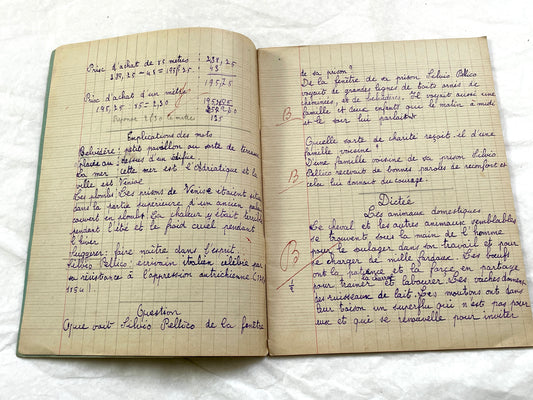 Prix d'achat de 85 mètres
238,25
43
195,25
Prix d'achat d'un mètre
195,25 : 85 = 2,30
Réponse 2f30 le mètre
Explication des mots
Belvédère : petit pavillon ou sorte de terrasse
au dessus d'un édifice
La mer : cette mer est l'Adriatique et la
ville est Venise
Les plombs : Les prisons de Venise étaient situées
dans la partie supérieure d'un ancien palais
couvert en plombs. La chaleur y était terrible
pendant l'été et le froid cruel pendant
l'hiver
Suggérer : faire naître dans l'esprit
Silvio Pellico : écrivain italien célèbre par
sa résistance à l'oppression autrichienne
1854)
Question
Que voit Silvio Pellico de la fenêtre
de sa prison?
De la fenêtre de sa prison Silvio Pellico
voyait de grandes lignes de toits ornés de
cheminées, et de belvédères. Il voyait aussi une
famille et deux enfants qui le matin à midi
et le soir lui parlaient
B
Quelle sorte de charité reçoit il d'une
famille voisine?
D'une famille voisine de sa prison Silvio
Pellico recevait de bonnes paroles de réconfort et
celui lui donnait du courage.
B
Dictée
Les animaux domestiques
Le cheval et les autres animaux semblables
se trouvent sous la main de l'homme
pour le soulager dans son travail et pour
se charger de mille fardeaux. Les bœufs
ont la patience et la force en partage
pour trainer la charrue et labourer. Les vaches donnent
des ruisseaux de lait. Les moutons ont dans
leur toison un superflu qui n'est pas pour
eux et qui se renouvelle pour inviter
B